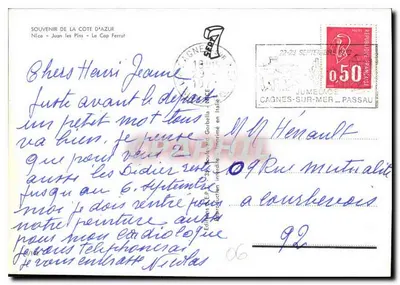 SOUVENIR DE LA COTE D'AZUR
Nice - Juan les Pins - Le Cap Ferrat
Chers Henri Jeanne
Juste avant le départ
un petit mot tous
va bien, je pense
que pour vous
aussi les Didier
jusqu au 6 septembre
moi je dois rentre pour
notre peinture aussi
pour mon cardiologue
je vous telephonerai
je vous embrasse Nicolas
0,50
JUMELAGE
CAGNES-SUR-MER _ PASSAU
MM Hérault
09 Rue mutualité
a courbevois
92
06